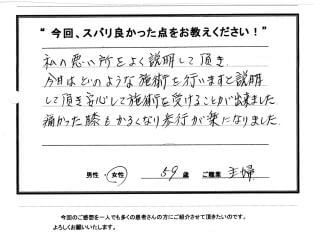 “今回、スバリ良かった点をお教えください！”
私の悪い所をよく説明して頂き
今日はどのような施術を行いますと説明
して頂き安心して施術を受けることが出来ました
痛かった膝もかるくなり歩行が楽になりました。
男性・女性 59歳 ご職業 主婦
今回のご感想を一人でも多くの患者さんの方にご紹介させて頂きたいのです。
よろしくお願いいたします。